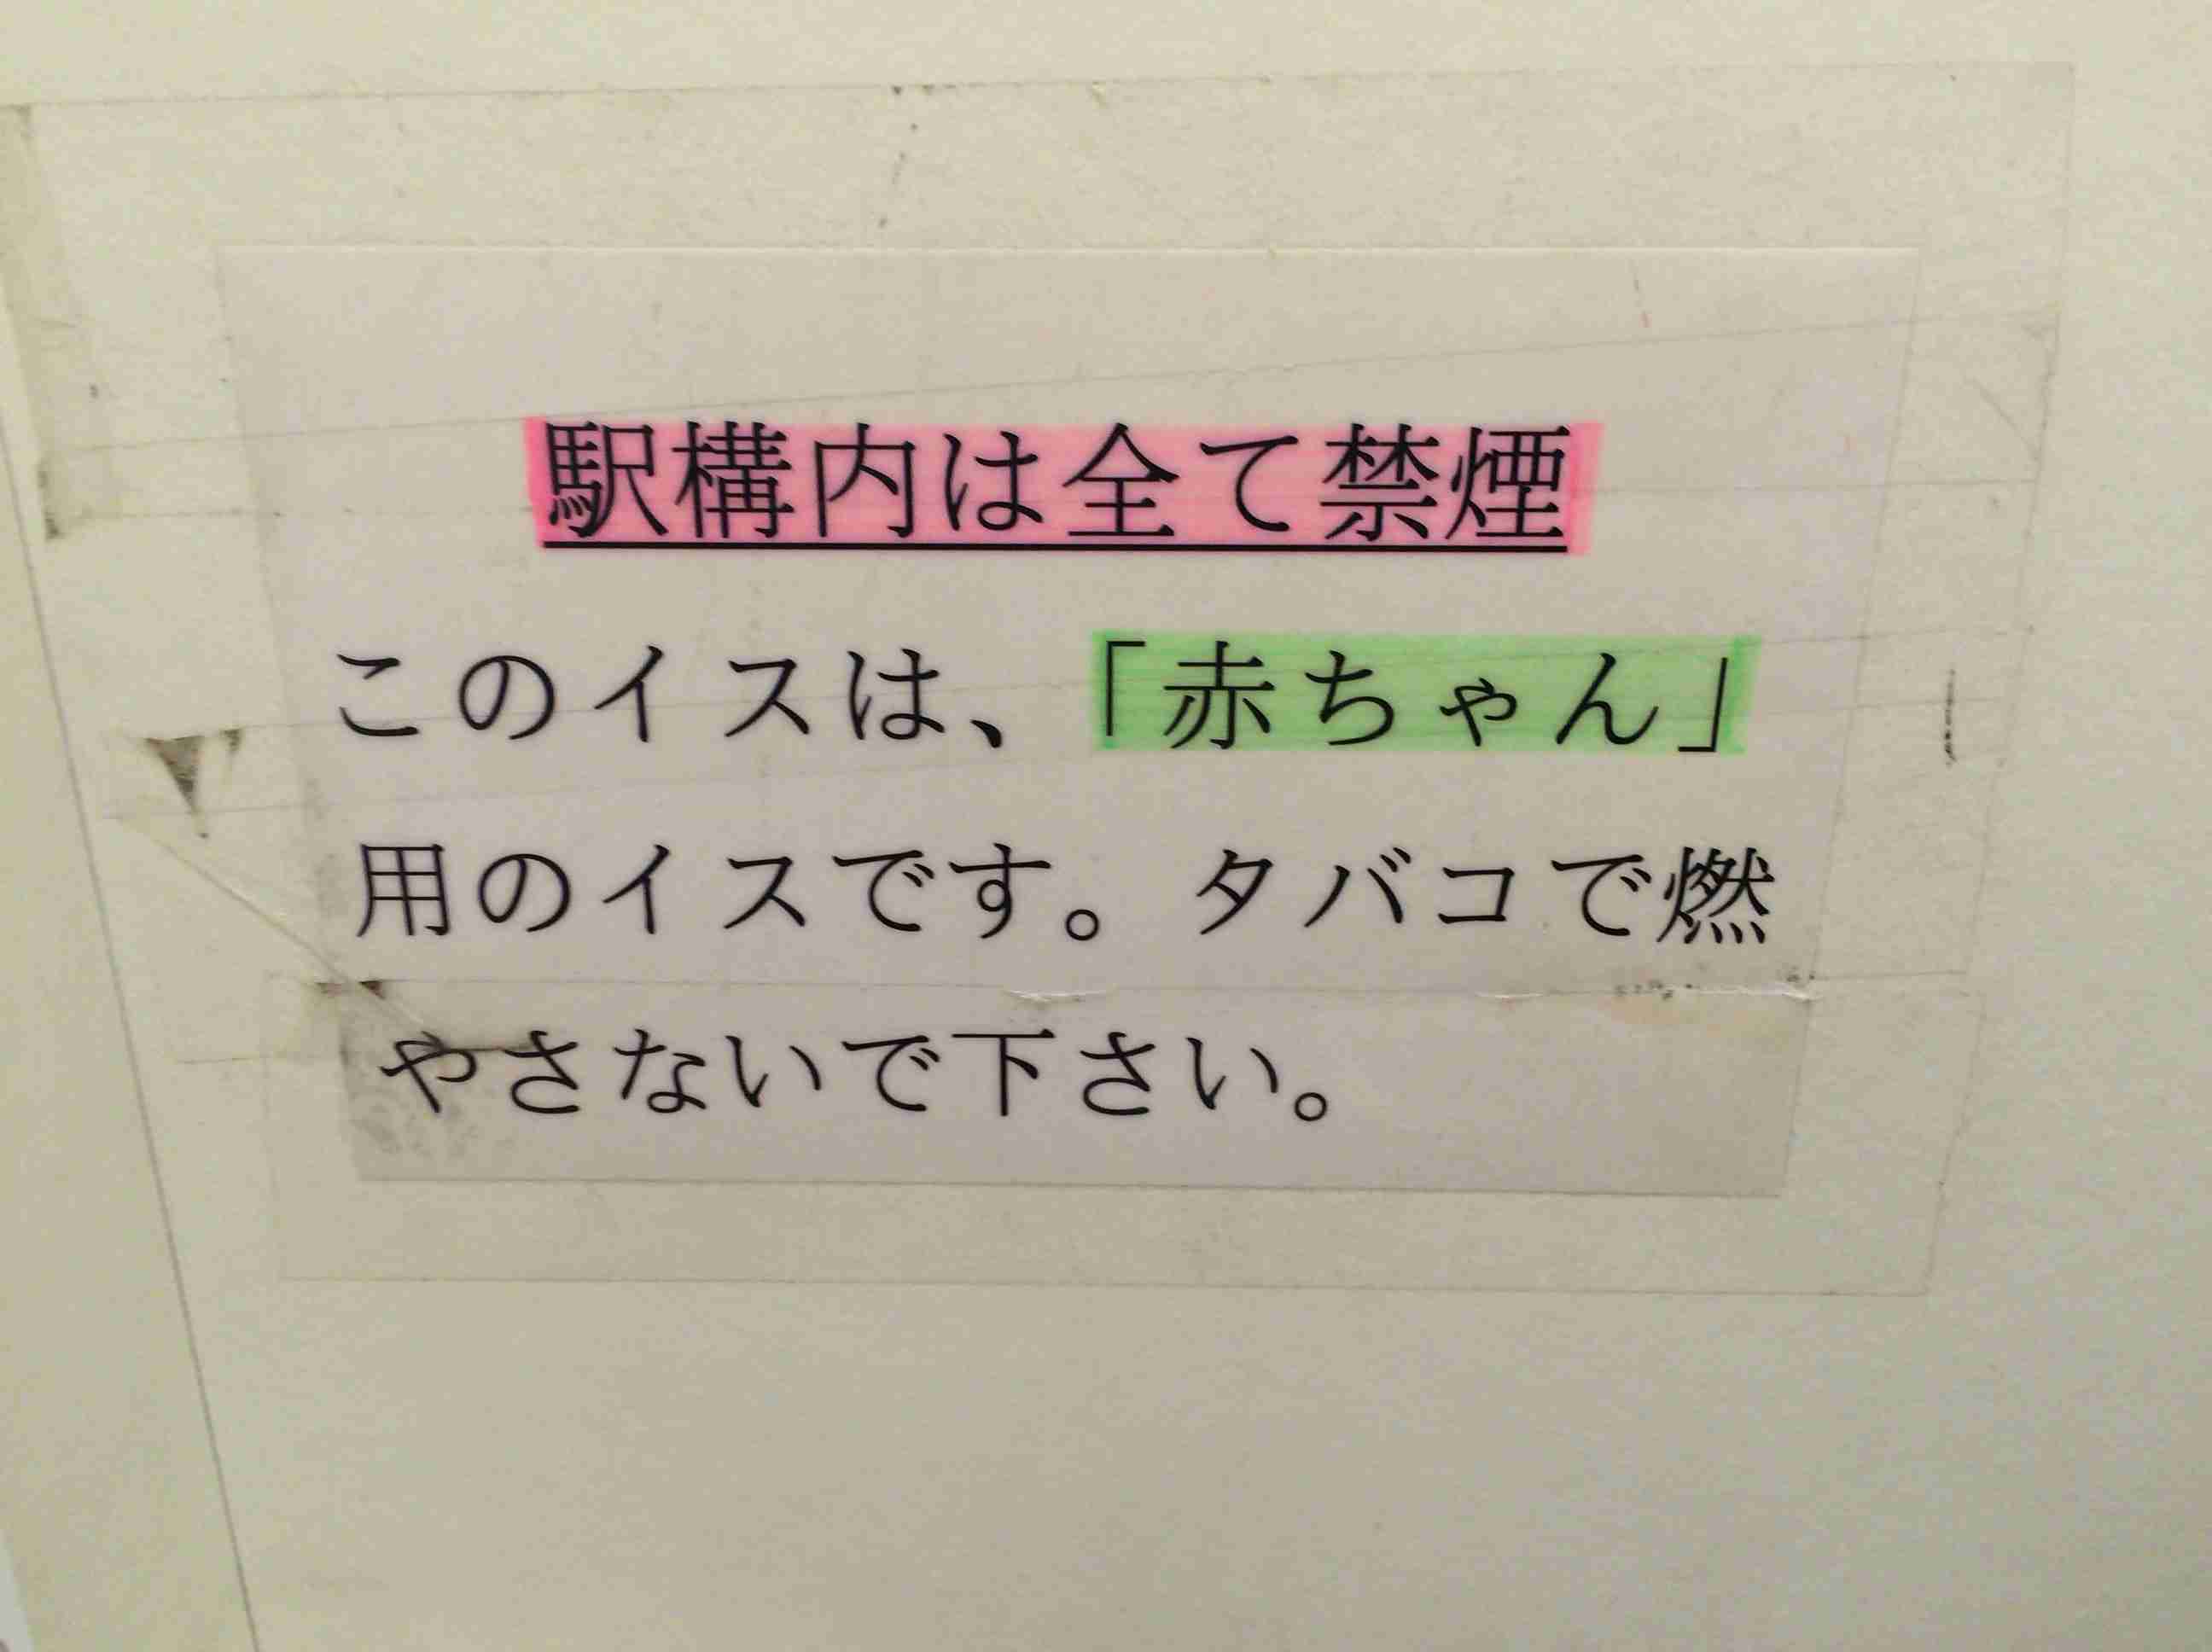 駅構内は全て禁煙
このイスは、「赤ちゃん」
用のイスです。タバコで燃
やさないで下さい。